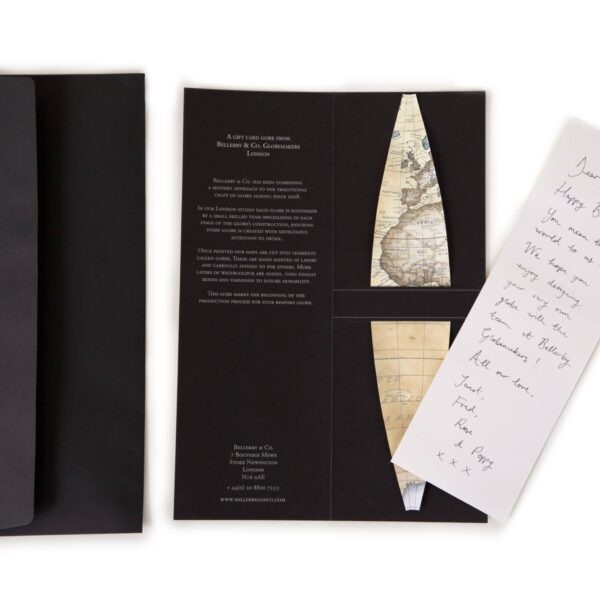 A gift card gore from
Bellerby & Co. Globemakers
London
Bellerby & Co. has been combining
a modern approach to the traditional
craft of globe making since 2008.
In our London studio each globe is handmade
by a small skilled team specialising in each
stage of the globe's construction, ensuring
every globe is created with meticulous
attention to detail.
Once printed our maps are cut into segments
called gores. These are hand painted in layers
and carefully affixed to the sphere. More
layers of watercolour are added, then finally
resins and varnishes to ensure durability.
This gore marks the beginning of the
production process for your bespoke globe.
Bellerby & Co.
7 Bouverie Mews
Stoke Newington
London
N16 0AE
+ 44(0) 20 8800 7235
www.bellerbyandco.com
Dear
Happy B
You mean t
world to us
We hope you
enjoy designing
your very own
globe with the
team at Bellerby
Globemakers!
All our love,
Janet,
Fred,
Rose
& Poppy
x x x